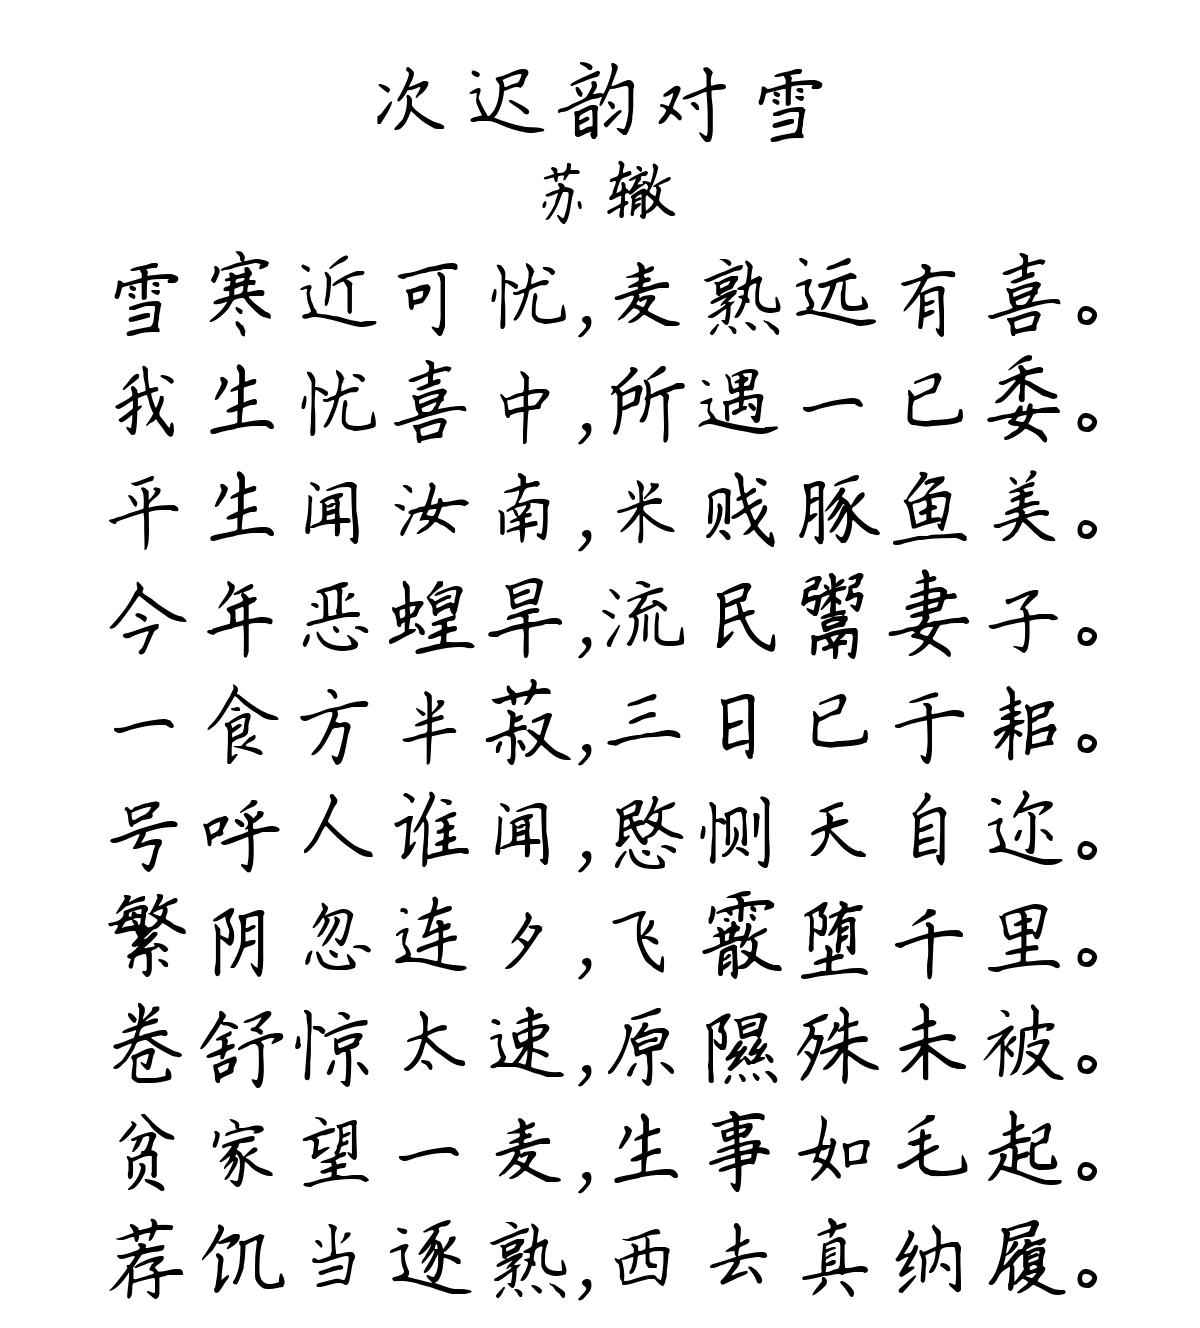 次迟韵对雪
苏辙
雪寒近可忧,麦熟远有喜。
我生忧喜中,所遇一已委。
平生闻汝南,米贱豚鱼美。
今年恶蝗旱,流民鬻妻子。
一食方半菽,三日已于耜。
号呼人谁闻,愍恻天自迩。
繁阴忽连夕,飞霰堕千里。
卷舒惊太速,原隰殊未被。
贫家望一麦,生事如毛起。
荐饥当逐熟,西去真纳履。